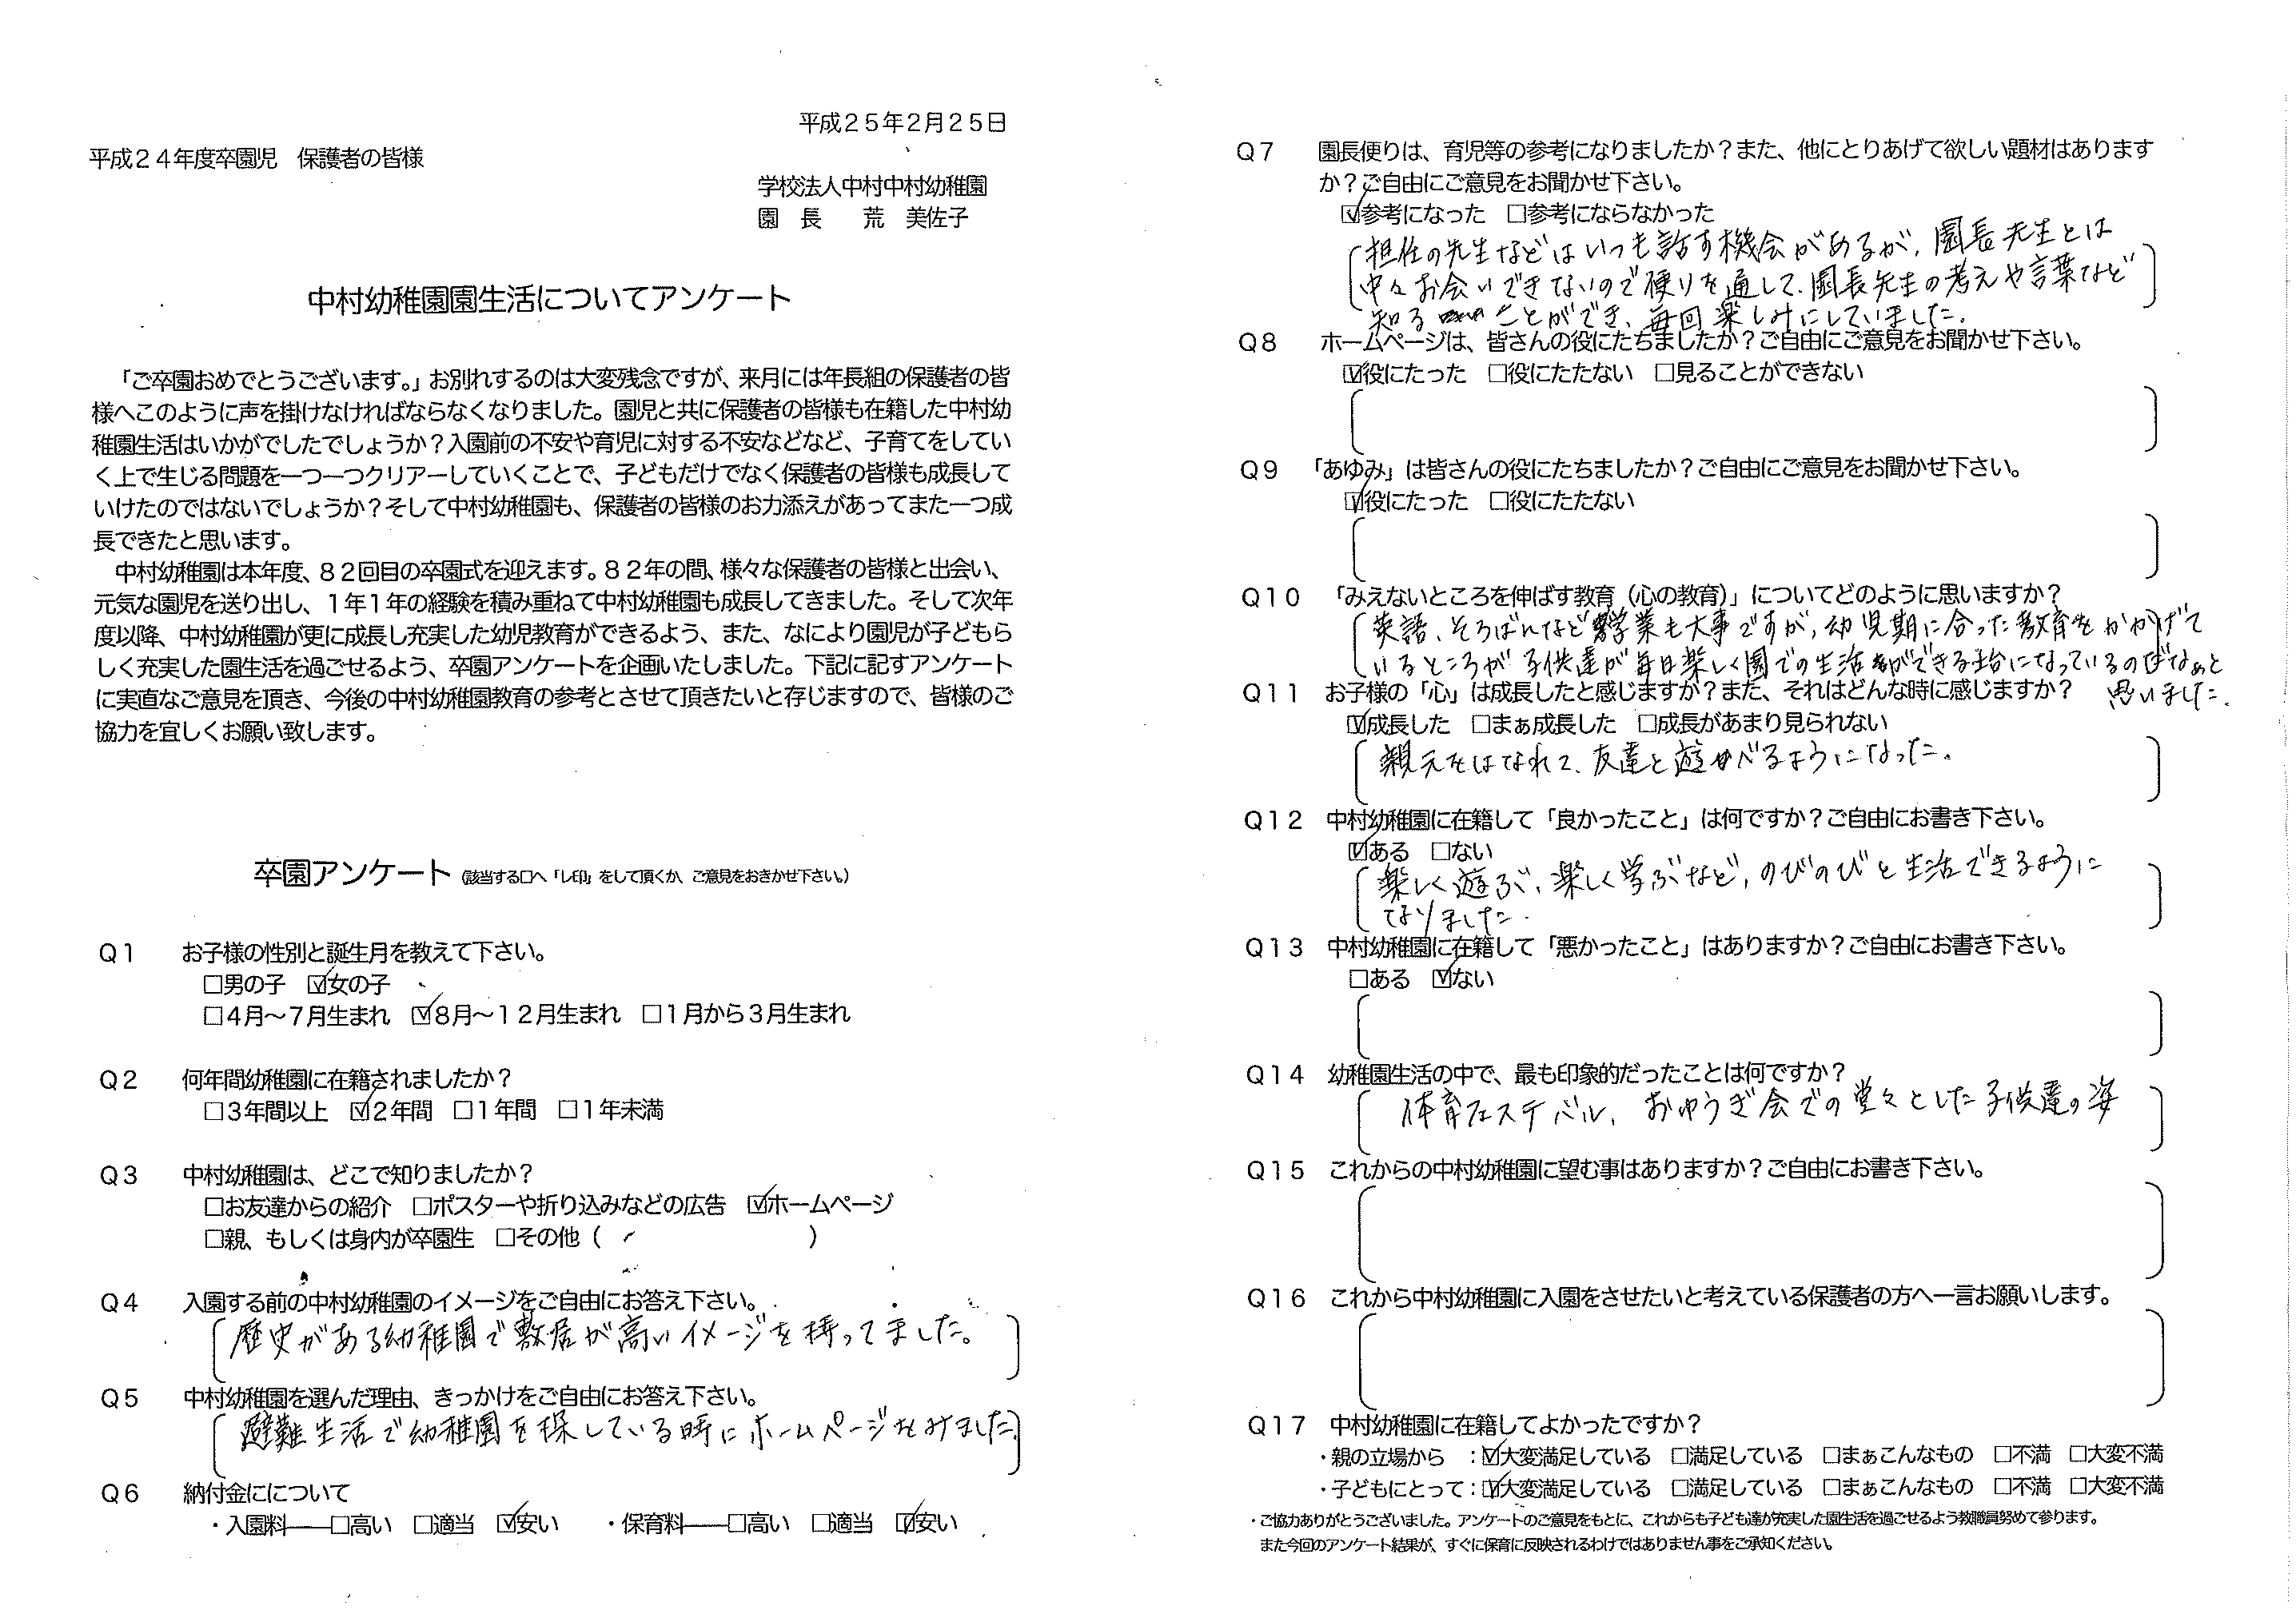 平成25年2月25日
平成24年度卒園児　保護者の皆様
学校法人中村中村幼稚園
園　長　　荒　美佐子
中村幼稚園園生活についてアンケート
「ご卒園おめでとうございます。」お別れするのは大変残念ですが、来月には年長組の保護者の皆
様へこのように声を掛けなければならなくなりました。園児と共に保護者の皆様も在籍した中村幼
稚園生活はいかがでしたでしょうか？入園前の不安や育児に対する不安などなど、子育てをしてい
く上で生じる問題を一つ一つクリアーしていくことで、子どもだけでなく保護者の皆様も成長して
いけたのではないでしょうか？そして中村幼稚園も、保護者の皆様のお力添えがあってまた一つ成
長できたと思います。
中村幼稚園は本年度、82回目の卒園式を迎えます。82年の間、様々な保護者の皆様と出会い、
元気な園児を送り出し、1年1年の経験を積み重ねて中村幼稚園も成長してきました。そして次年
度以降、中村幼稚園が更に成長し充実した幼児教育ができるよう、また、なにより園児が子どもら
しく充実した園生活を過ごせるよう、卒園アンケートを企画いたしました。下記に記すアンケート
に実直なご意見を頂き、今後の中村幼稚園教育の参考とさせて頂きたいと存じますので、皆様のご
協力を宜しくお願い致します。
卒園アンケート（該当する□へ「レ印」をして頂くか、ご意見をおきかせ下さい。）
Q1　お子様の性別と誕生月を教えて下さい。
□男の子　☑女の子
□4月～7月生まれ　☑8月～12月生まれ　□1月から3月生まれ
Q2　何年間幼稚園に在籍されましたか？
□3年間以上　☑2年間　□1年間　□1年未満
Q3　中村幼稚園は、どこで知りましたか？
□お友達からの紹介　□ポスターや折り込みなどの広告　☑ホームページ
□親、もしくは身内が卒園生　□その他（　　　　　　　　）
Q4　入園する前の中村幼稚園のイメージをご自由にお答え下さい。
歴史がある幼稚園で敷居が高いイメージを持ってました。
Q5　中村幼稚園を選んだ理由、きっかけをご自由にお答え下さい。
避難生活で幼稚園を探している時にホームページをみました。
Q6　納付金にについて
・入園料――□高い　□適当　☑安い　・保育料――□高い　□適当　☑安い
Q7　園長便りは、育児等の参考になりましたか？また、他にとりあげて欲しい題材はあります
か？ご自由にご意見をお聞かせ下さい。
☑参考になった　□参考にならなかった
担任の先生などはいつも話す機会があるが、園長先生とは
中々お会いできないので便りを通して、園長先生の考えや言葉など
知ることができ、毎回楽しみにしていました。
Q8　ホームページは、皆さんの役にたちましたか？ご自由にご意見をお聞かせ下さい。
☑役にたった　□役にたたない　□見ることができない
Q9　「あゆみ」は皆さんの役にたちましたか？ご自由にご意見をお聞かせ下さい。
☑役にたった　□役にたたない
Q10　「みえないところを伸ばす教育（心の教育）」についてどのように思いますか？
英語、そろばんなど学業も大事ですが、幼児期に合った教育をかかげて
いるところが子供達が毎日楽しく園での生活ができる土台になっているのだなぁと
思いました。
Q11　お子様の「心」は成長したと感じますか？また、それはどんな時に感じますか？
☑成長した　□まぁ成長した　□成長があまり見られない
親元をはなれて、友達と遊べるようになった。
Q12　中村幼稚園に在籍して「良かったこと」は何ですか？ご自由にお書き下さい。
☑ある　□ない
楽しく遊ぶ、楽しく学ぶなど、のびのびと生活できるように
なりました。
Q13　中村幼稚園に在籍して「悪かったこと」はありますか？ご自由にお書き下さい。
□ある　☑ない
Q14　幼稚園生活の中で、最も印象的だったことは何ですか？
体育フェスティバル、おゆうぎ会での堂々とした子供達の姿
Q15　これからの中村幼稚園に望む事はありますか？ご自由にお書き下さい。
Q16　これから中村幼稚園に入園をさせたいと考えている保護者の方へ一言お願いします。
Q17　中村幼稚園に在籍してよかったですか？
・親の立場から　：☑大変満足している　□満足している　□まぁこんなもの　□不満　□大変不満
・子どもにとって：☑大変満足している　□満足している　□まぁこんなもの　□不満　□大変不満
・ご協力ありがとうございました。アンケートのご意見をもとに、これからも子ども達が充実した園生活を過ごせるよう教職員努めて参ります。
また今回のアンケート結果が、すぐに保育に反映されるわけではありません事をご承知ください。